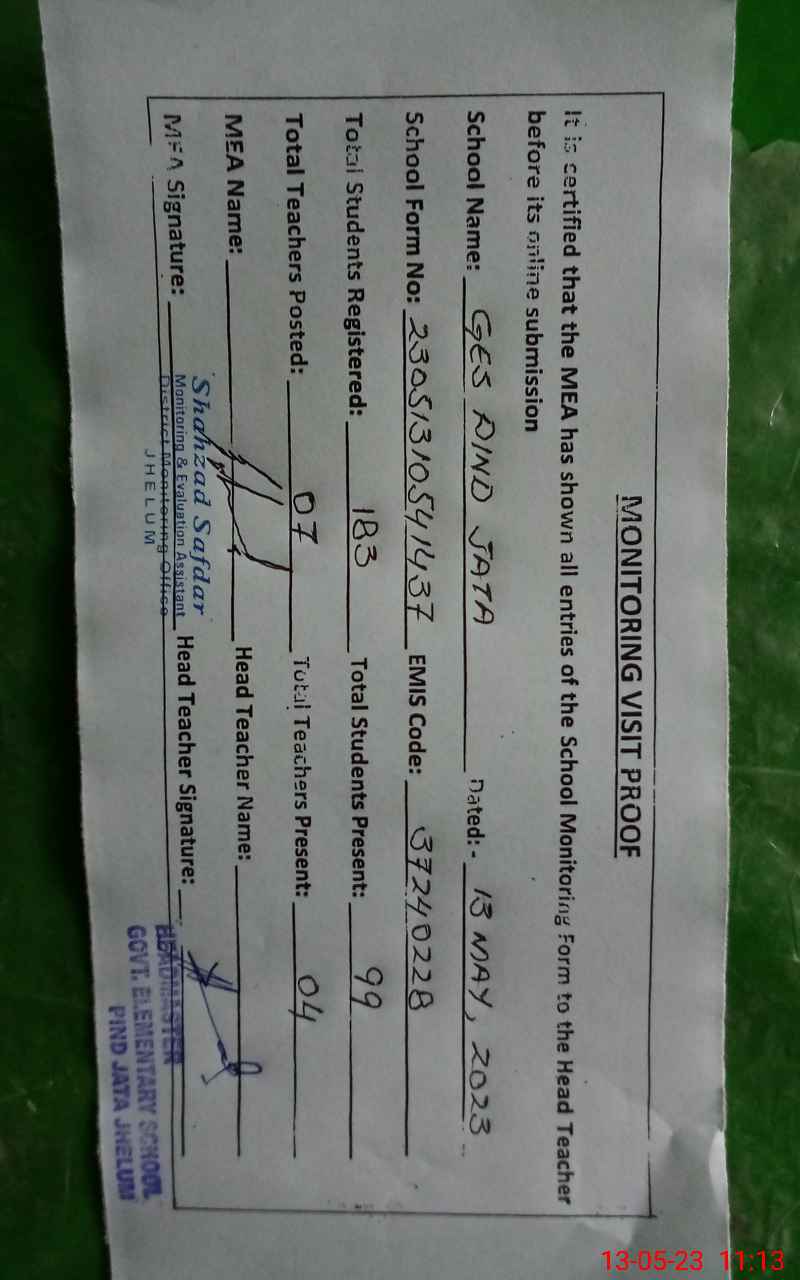 MONITORING VISIT PROOF
It is certified that the MEA has shown all entries of the School Monitoring Form to the Head Teacher
before its online submission
School Name: GES PIND JATA Dated: - 13 MAY, 2023
School Form No: 230513105414 37 EMIS Code: 37240228
Total Students Registered: 183 Total Students Present: 99
Total Teachers Posted: 07 Total Teachers Present: 04
MEA Name: Head Teacher Name:
MEA Signature: Head Teacher Signature:
Shahzad Safdar
Monitoring & Evaluation Assistant
District Monitoring Office
JHELUM
HEADMASTER
GOVT. ELEMENTARY SCHOOL
PIND JATA JHELUM
13-05-23 11:13